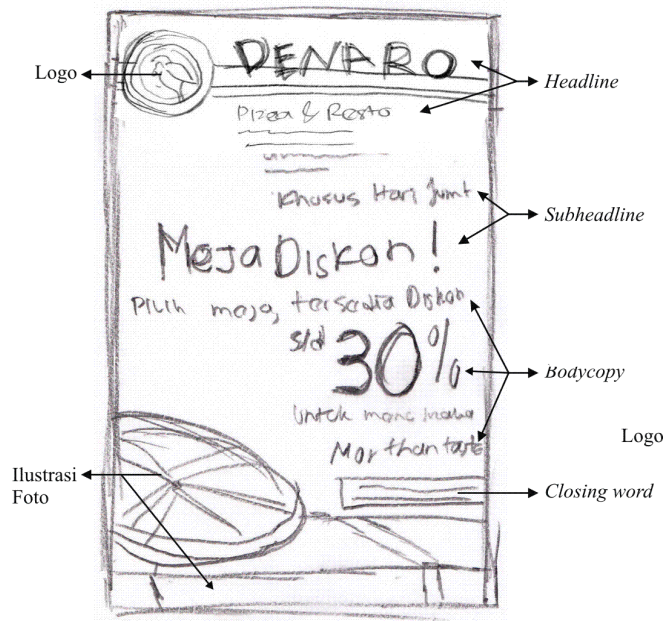 Logo
DENARO
Headline
Pizza & Resto
Khusus Hari Jumt
Subheadline
Meja Diskon!
Pilih meja, tersedia Diskon
s/d 30%
Bodycopy
Untuk
Logo
Mor than taste
Ilustrasi
Foto
Closing word